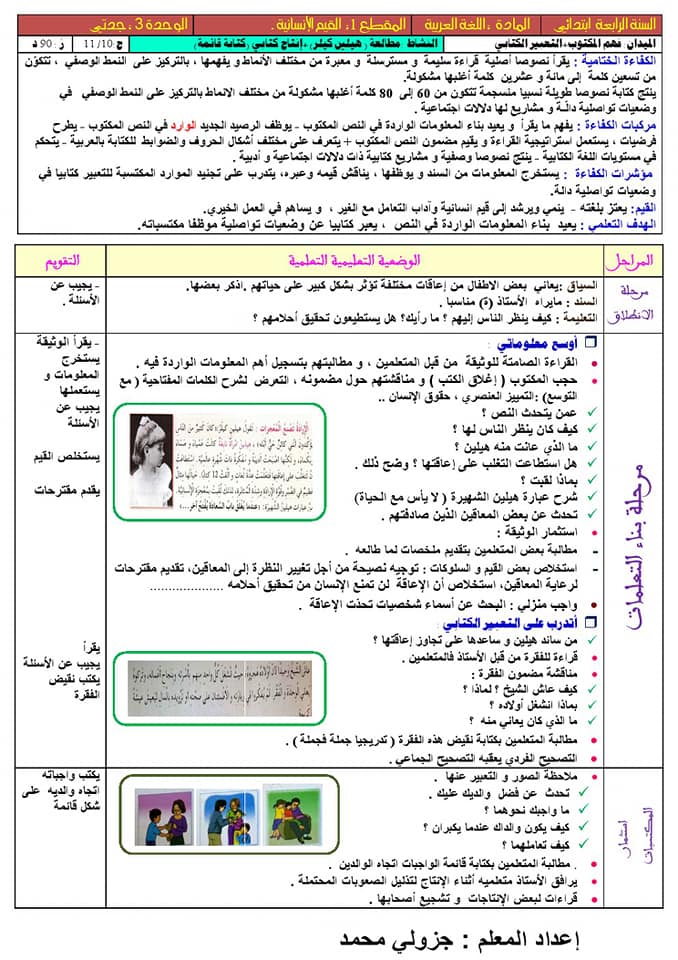 السنة الرابعة ابتدائي المادة : اللغة العربية المقطع 1: القيم الأنسانية . الوحدة 3 : جدتي
الميدان: فهم المكتوب، التعبير الكتابي النشاط : مطالعة ( هيلين كيلر) +إنتاج كتابي (كتابة قائمة) ح:11/10 ز: 90 د
الكفاءة الختامية : يقرأ نصوصا أصلية قراءة سليمة و مسترسلة و معبرة من مختلف الأنماط و يفهمها ، بالتركيز على النمط الوصفي ، تتكوّن
من تسعين كلمة إلى مائة و عشرين كلمة أغلبها مشكولة.
ينتج كتابة نصوصا طويلة نسبيا منسجمة تتكون من 60 إلى 80 كلمة أغلبها مشكولة من مختلف الانماط بالتركيز على النمط الوصفي في
وضعيات تواصلية دالـة و مشاريع لها دلالات اجتماعية .
مركبات الكفاءة : يفهم ما يقرأ و يعيد بناء المعلومات الواردة في النص المكتوب - يوظف الرصيد الجديد الوارد في النص المكتوب - يطرح
فرضيات ، يستعمل استراتيجية القراءة و يقيم مضمون النص المكتوب + يتعرف على مختلف أشكال الحروف والضوابط للكتابة بالعربية - يتحكم
في مستويات اللغة الكتابية - ينتج نصوصا وصفية و مشاريع كتابية ذات دلالات اجتماعية و أدبية .
مؤشرات الكفاءة : يستخرج المعلومات من السند و يوظفها ، يناقش قيمه وعبره، يتدرب على تجنيد الموارد المكتسبة للتعبير كتابيا في
وضعيات تواصلية دالة.
القيم: يعتز بلغته - ينمي ويرشد إلى قيم انسانية وآداب التعامل مع الغير ، و يساهم في العمل الخيري.
الهدف التعلمي : يعيد بناء المعلومات الواردة في النص ، يعبر كتابيا عن وضعيات تواصلية موظفا مكتسباته.
المراحل الوضعية التعليمية التعلمية التقويم
مرحلة
الانطلاق
السياق :يعاني بعض الاطفال من إعاقات مختلفة تؤثر بشكل كبير على حياتهم .اذكر بعضها.
السند : مايراه الأستاذ (ة) مناسبا .
التعليمة : كيف ينظر الناس إليهم ؟ ما رأيك؟ هل يستطيعون تحقيق أحلامهم ؟
- يجيب عن
الأسئلة .
مرحلة بناء التعلمات
أوسع معلوماتي :
القراءة الصامتة للوثيقة من قبل المتعلمين ، و مطالبتهم بتسجيل أهم المعلومات الواردة فيه .
حجب المكتوب ( إغلاق الكتب ) و مناقشتهم حول مضمونه ، التعرض لشرح الكلمات المفتاحية ( مع
التوسع): التمييز العنصري ، حقوق الإنسان ..
عمن يتحدث النص ؟
كيف كان ينظر الناس لها ؟
ما الذي عانت منه هيلين ؟
هل استطاعت التغلب على إعاقتها ؟ وضح ذلك .
بماذا لقبت ؟
شرح عبارة هيلين الشهيرة ( لا يأس مع الحياة)
تحدث عن بعض المعاقين الذين صادفتهم .
استثمار الوثيقة :
مطالبة بعض المتعلمين بتقديم ملخصات لما طالعه .
استخلاص بعض القيم و السلوكات : توجيه نصيحة من أجل تغيير النظرة إلى المعاقين، تقديم مقترحات
لرعاية المعاقين، استخلاص أن الإعاقة لن تمنع الإنسان من تحقيق أحلامه ...................
واجب منزلي : البحث عن أسماء شخصيات تحدّت الإعاقة .
أتدرب على التعبير الكتابي :
من ساند هيلين و ساعدها على تجاوز إعاقتها ؟
قراءة للفقرة من قبل الأستاذ فالمتعلمين .
مناقشة مضمون الفقرة :
كيف عاش الشيخ ؟ لماذا ؟
بماذا انشغل أولاده ؟
ما الذي كان يعاني منه ؟
مطالبة المتعلمين بكتابة نقيض هذه الفقرة ( تدريجيا جملة فجملة ) .
التصحيح الفردي يعقبه التصحيح الجماعي .
- يقرأ الوثيقة
يستخرج
المعلومات و
يستعملها
يجيب عن
الأسئلة
يستخلص القيم
يقدم مقترحات
يقرأ
يجيب عن الأسئلة
يكتب نقيض
الفقرة
استثمار
المكتسبات
ملاحظة الصور و التعبير عنها .
تحدث عن فضل والديك عليك .
ما واجبك نحوهما ؟
كيف يكون والداك عندما يكبران ؟
كيف تعاملهما ؟
مطالبة المتعلمين بكتابة قائمة الواجبات اتجاه الوالدين .
يرافق الأستاذ متعلميه أثناء الإنتاج لتذليل الصعوبات المحتملة .
قراءات لبعض الإنتاجات و تشجيع أصحابها .
يكتب واجباته
اتجاه والديه على
شكل قائمة
إعداد المعلم : جزولي محمد